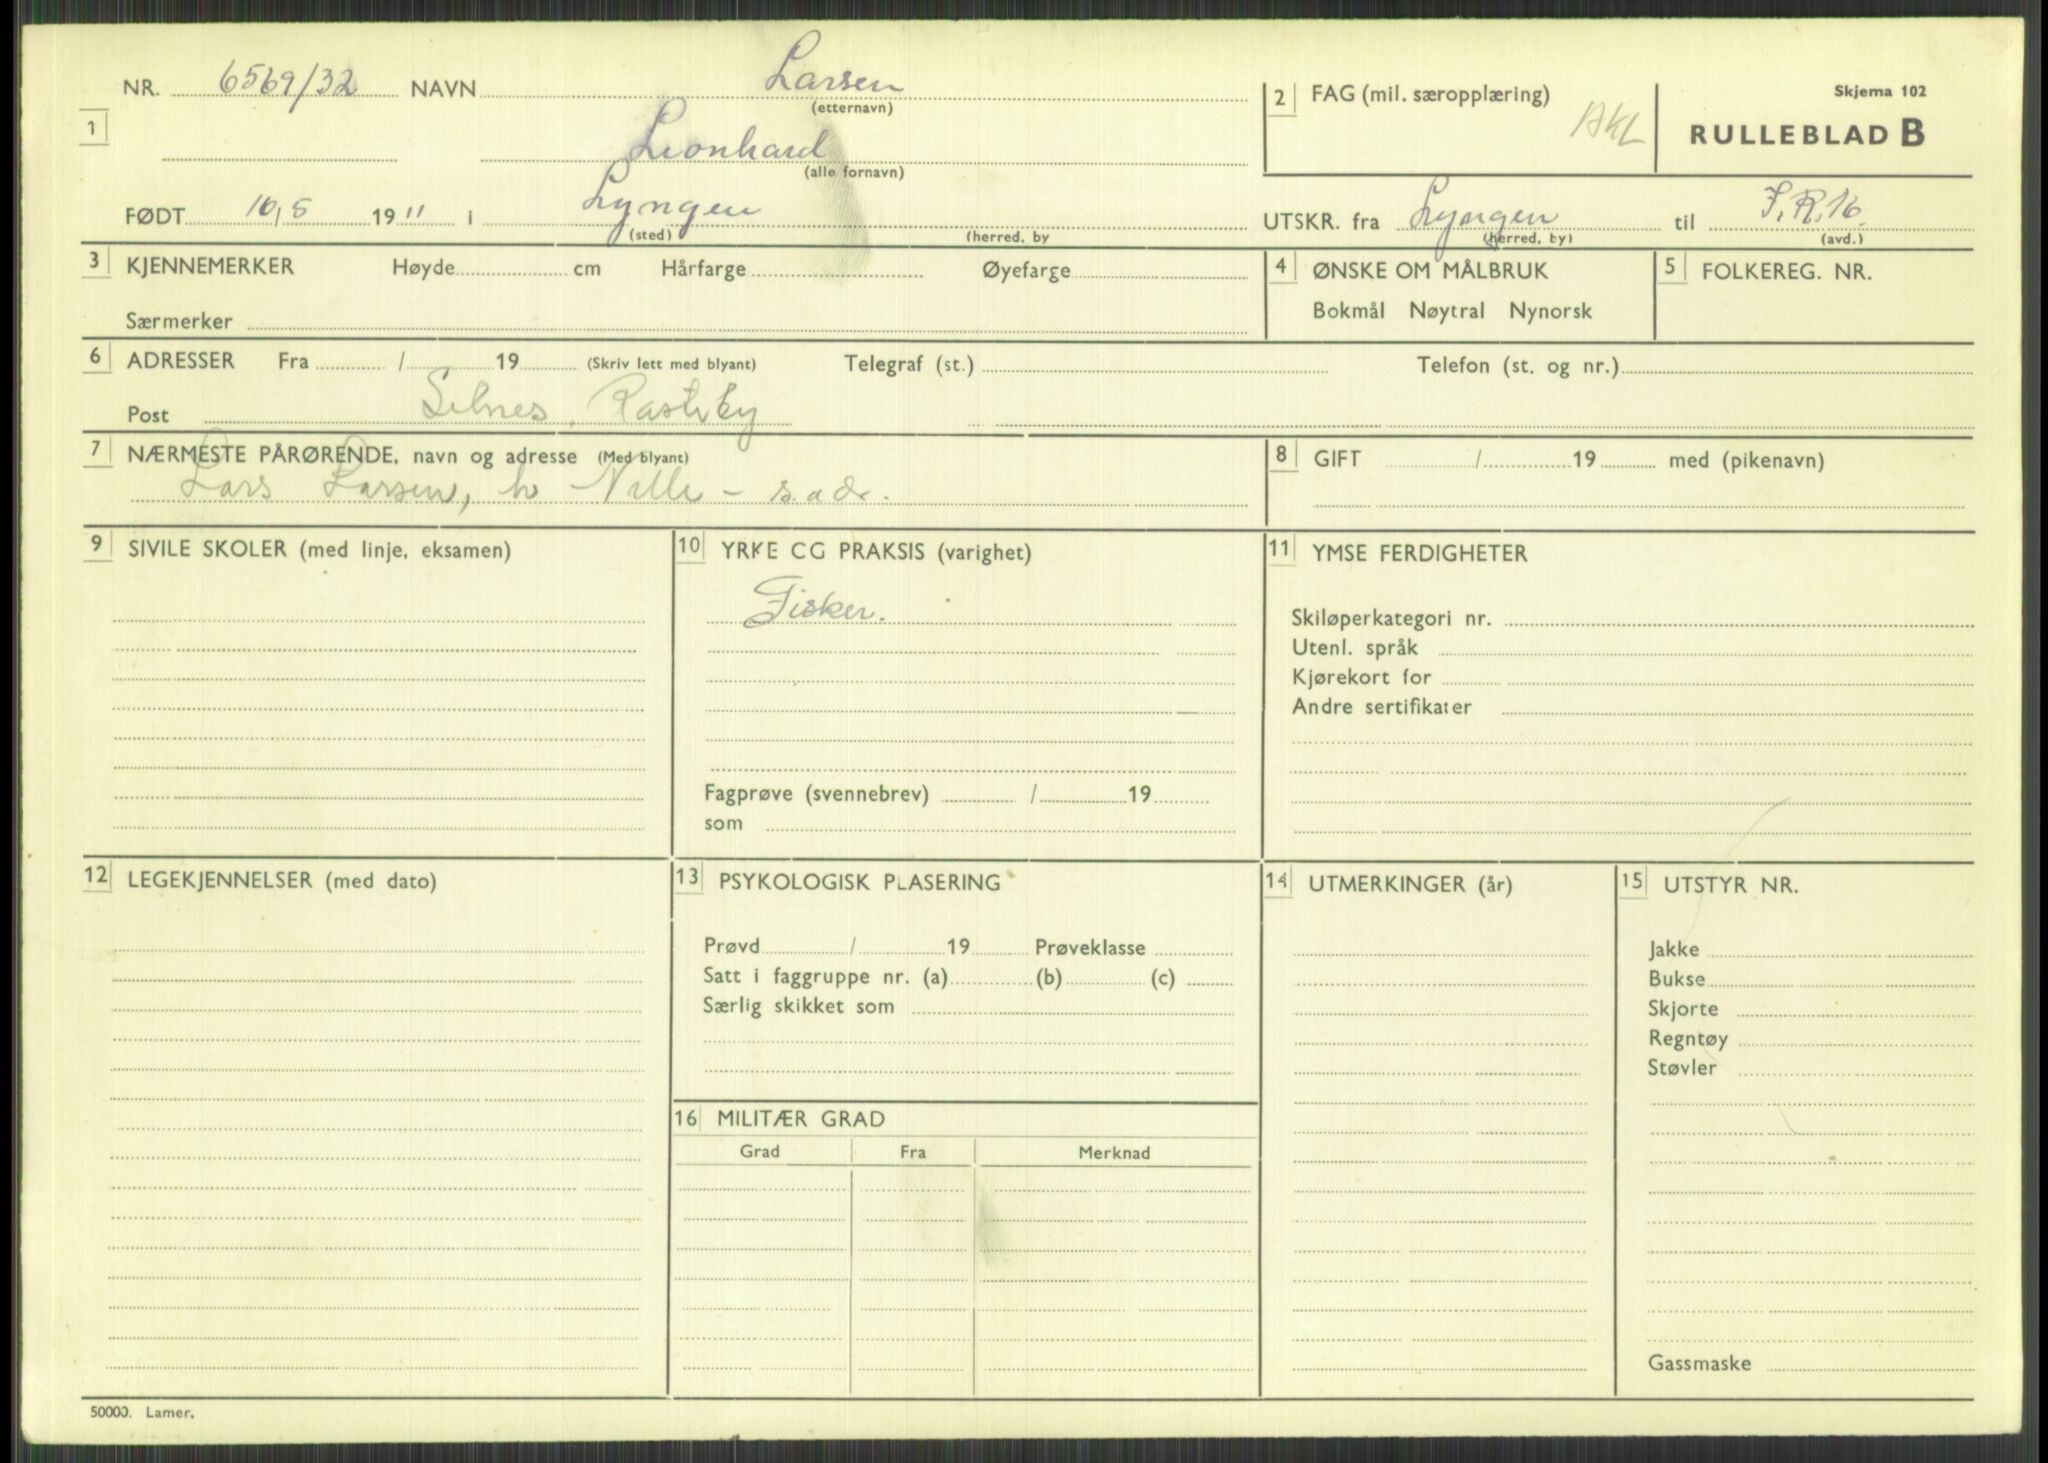 NR. 6569/32 NAVN Larsen
(etternavn)
1
Leonhard
(alle fornavn)
FØDT 10/5 1911 i Lyngen
(sted) (herred, by
2 FAG (mil. særopplæring)
Skjema 102
RULLEBLAD B
UTSKR. fra Lyngen til I.R.16.
(herred, by) (avd.)
3 KJENNEMERKER Høyde cm Hårfarge Øyefarge
Særmerker
4 ØNSKE OM MÅLBRUK
Bokmål Nøytral Nynorsk
5 FOLKEREG. NR.
6 ADRESSER Fra / 19 (Skriv lett med blyant) Telegraf (st.) Telefon (st. og nr.)
Post Selnes, Rasteby
7 NÆRMESTE PÅRØRENDE, navn og adresse (Med blyant)
Lars Larsen, h Nille - s. adr.
8 GIFT / 19 med (pikenavn)
9 SIVILE SKOLER (med linje, eksamen)
10 YRKE CG PRAKSIS (varighet)
Fisker.
Fagprøve (svennebrev) / 19
som
11 YMSE FERDIGHETER
Skiløperkategori nr.
Utenl. språk
Kjørekort for
Andre sertifikater
12 LEGEKJENNELSER (med dato)
13 PSYKOLOGISK PLASERING
Prøvd / 19 Prøveklasse
Satt i faggruppe nr. (a) (b) (c)
Særlig skikket som
16 MILITÆR GRAD
Grad Fra Merknad
14 UTMERKINGER (år)
15 UTSTYR NR.
Jakke
Bukse
Skjorte
Regntøy
Støvler
Gassmaske
50000. Lamer.